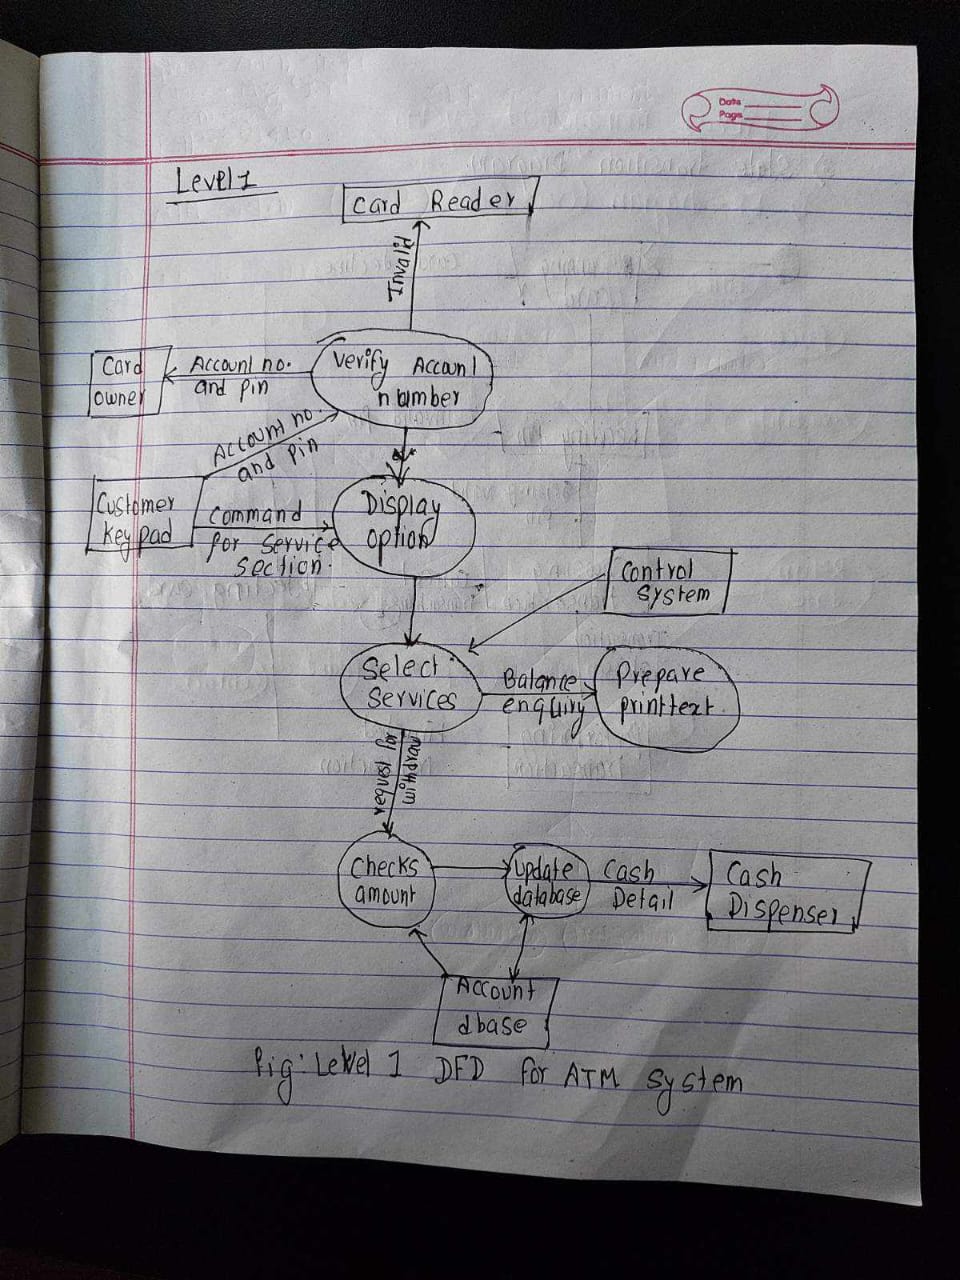 Date
Page
Level 1
Card Reader
Invalid
Verify Account
number
Account no.
and pin
Card
owner
Account no.
and pin
Customer
key pad
Command
for service
section.
Display
option
Control
System
Select
Services
Balance
enquiry
Prepare
printtext.
request for
withdraw
Checks
amount
Update
database
Cash
Detail
Cash
Dispenser
Account
dbase
Fig: Level 1 DFD for ATM system